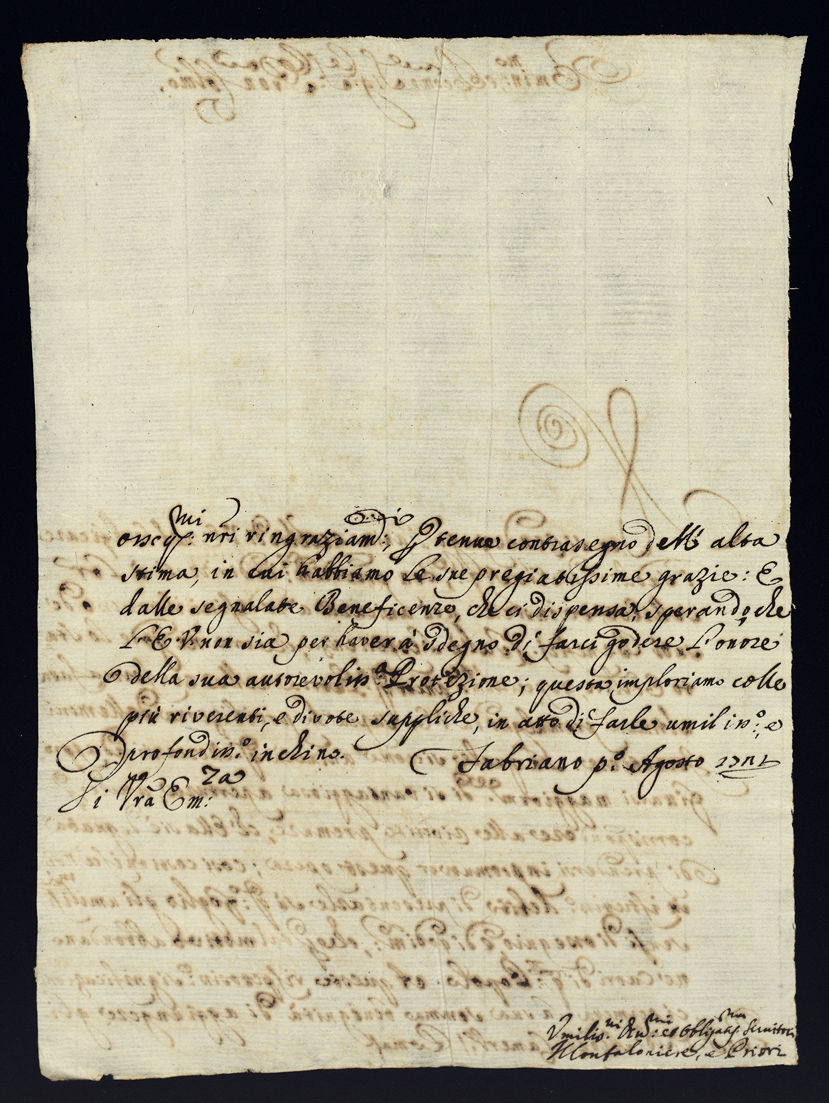 osseq.mi nri ringraziamti, p tenue contrasegno dell' alta
stima, in cui habbiamo le sue pregiatissime grazie: E
dalle segnalate Beneficenze, che ci dispensa, sperando, che
L'E.V. non sia per haver à sdegno di farci godere l'onore
della sua autorevolis.a Protezione; questa imploriamo colle
più riverenti, e divote suppliche, in atto di farle umilis.o, e
profondis.o inchino. Fabriano p.o Agosto
Di Vra Em.za
Umilis.mi Dev.mi et Obligat.mi Servitori
Il Confaloniere, e Priori